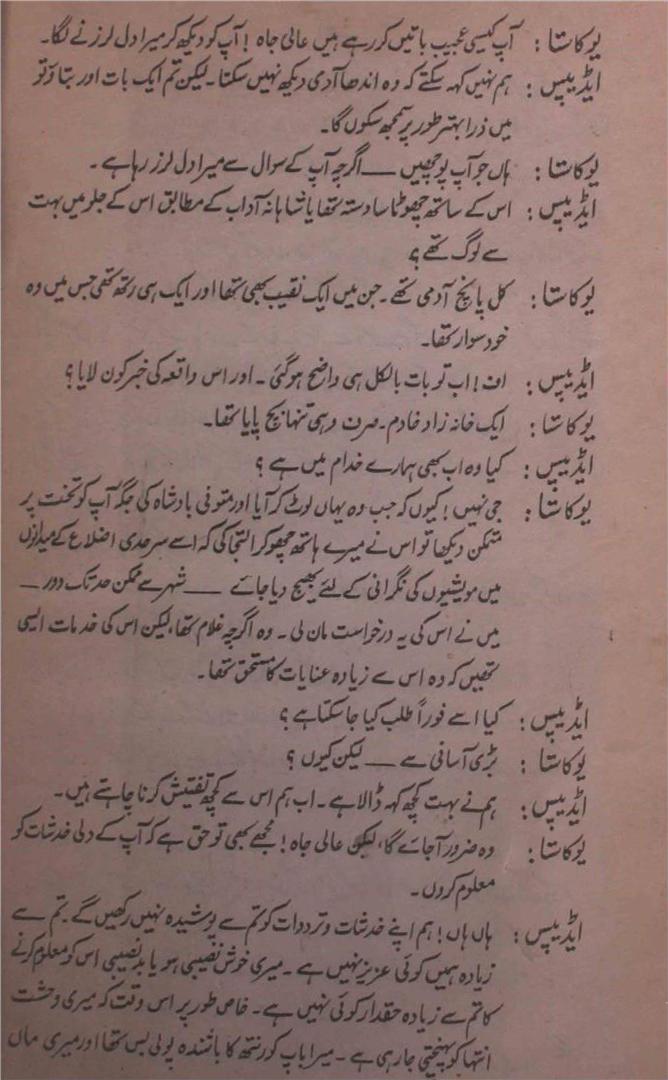 یوکاستا: آپ کیسی عجیب باتیں کر رہے ہیں عالی جاہ! آپ کو دیکھ کر میرا دل لرزنے لگا۔
ایڈیپس: ہم نہیں کہہ سکتے کہ وہ اندھا آدمی دیکھ نہیں سکتا۔ لیکن تم ایک بات اور بتاؤ تو
میں ذرا بہتر طور پر سمجھ سکوں گا۔
یوکاستا: ہاں جو آپ پوچھیں — اگرچہ آپ کے سوال سے میرا دل لرز رہا ہے۔
ایڈیپس: اس کے ساتھ چھوٹا سا دستہ تھا یا شاہانہ آداب کے مطابق اس کے جلو میں بہت
سے لوگ تھے؟
یوکاستا: کل پانچ آدمی تھے۔ جن میں ایک نقیب بھی تھا اور ایک ہی رتھ تھی جس میں وہ
خود سوار تھا۔
ایڈیپس: اف! اب تو بات بالکل ہی واضح ہو گئی۔ اور اس واقعہ کی خبر کون لایا؟
یوکاستا: ایک خانہ زاد خادم۔ صرف وہی تنہا بچ پایا تھا۔
ایڈیپس: کیا وہ اب بھی ہمارے خدام میں ہے؟
یوکاستا: جی نہیں! کیوں کہ جب وہ یہاں لوٹ کر آیا اور متوفی بادشاہ کی جگہ آپ کو تخت پر
متمکن دیکھا تو اس نے میرے ہاتھ چھو کر التجا کی کہ اسے سرحدی اضلاع کے میدانوں
میں مویشیوں کی نگرانی کے لئے بھیج دیا جائے — شہر سے ممکن حد تک دور —
میں نے اس کی یہ درخواست مان لی۔ وہ اگرچہ غلام تھا، لیکن اس کی خدمات ایسی
تھیں کہ وہ اس سے زیادہ عنایات کا مستحق تھا۔
ایڈیپس: کیا اسے فوراً طلب کیا جا سکتا ہے؟
یوکاستا: بڑی آسانی سے — لیکن کیوں؟
ایڈیپس: ہم نے بہت کچھ کہہ ڈالا ہے۔ اب ہم اس سے کچھ تفتیش کرنا چاہتے ہیں۔
یوکاستا: وہ ضرور آ جائے گا، لیکن عالی جاہ! مجھے بھی تو حق ہے کہ آپ کے دلی خدشات کو
معلوم کروں۔
ایڈیپس: ہاں ہاں! ہم اپنے خدشات و ترددات کو تم سے پوشیدہ نہیں رکھیں گے۔ تم سے
زیادہ ہمیں کوئی عزیز نہیں ہے۔ میری خوش نصیبی ہو یا بدنصیبی اس کو معلوم کرنے
کا تم سے زیادہ حقدار کوئی نہیں ہے۔ خاص طور پر اس وقت کہ میری وحشت
انتہا کو پہنچتی جا رہی ہے۔ میرا باپ کورنتھ کا باشندہ پولی بس تھا اور میری ماں